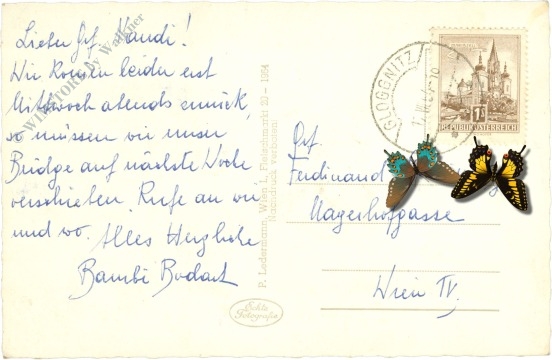 Lieber Gf. Nandi!
Wir kommen leider erst
Mittwoch abends zurück,
so müssen wir unser
Bridge auf nächste Woche
verschieben. Rufe an wo
und wo. Alles Herzliche
Bambi Bodart
© WINSTORE by Wallner
P. Ledermann, Wien I., Fleischmarkt 20 - 1954
Nachdruck verboten
Echte
Fotografie
GLOGGNITZ
1S
REPUBLIK ÖSTERREICH
Gf.
Ferdinand
Mayerhofgasse
Wien IV.